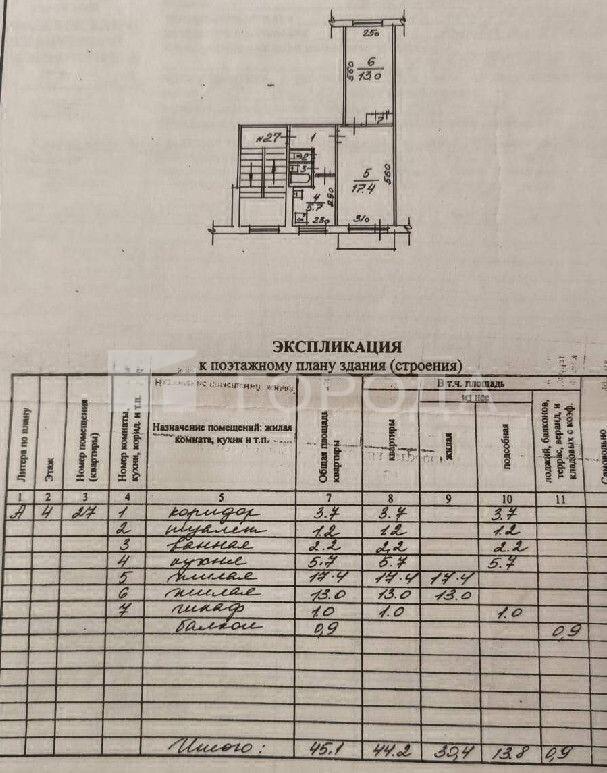 250
6
13.0
560
7
№27
1
2
3
5
17.4
560
4
5.7
290
250
310
ГОРОДА
ЭКСПЛИКАЦИЯ
к поэтажному плану здания (строения)
Литера по плану
Этаж
Номер помещения (квартиры)
Номер комнаты, кухни, корид. и т.п.
Назначение помещений: жилая комната, кухня и т.п.
Общая площадь квартиры
В т.ч. площадь
квартиры
жилая
подсобная
лоджий, балконов, террас, веранд, и кладовых с коэф.
Самовольно
1 2 3 4 5 7 8 9 10 11
А 4 27 1 коридор 3.7 3.7 3.7
2 туалет 1.2 1.2 1.2
3 ванная 2.2 2.2 2.2
4 кухня 5.7 5.7 5.7
5 жилая 17.4 17.4 17.4
6 жилая 13.0 13.0 13.0
7 шкаф 1.0 1.0 1.0
балкон 0,9 0,9
Итого: 45.1 44.2 30,4 13.8 0,9